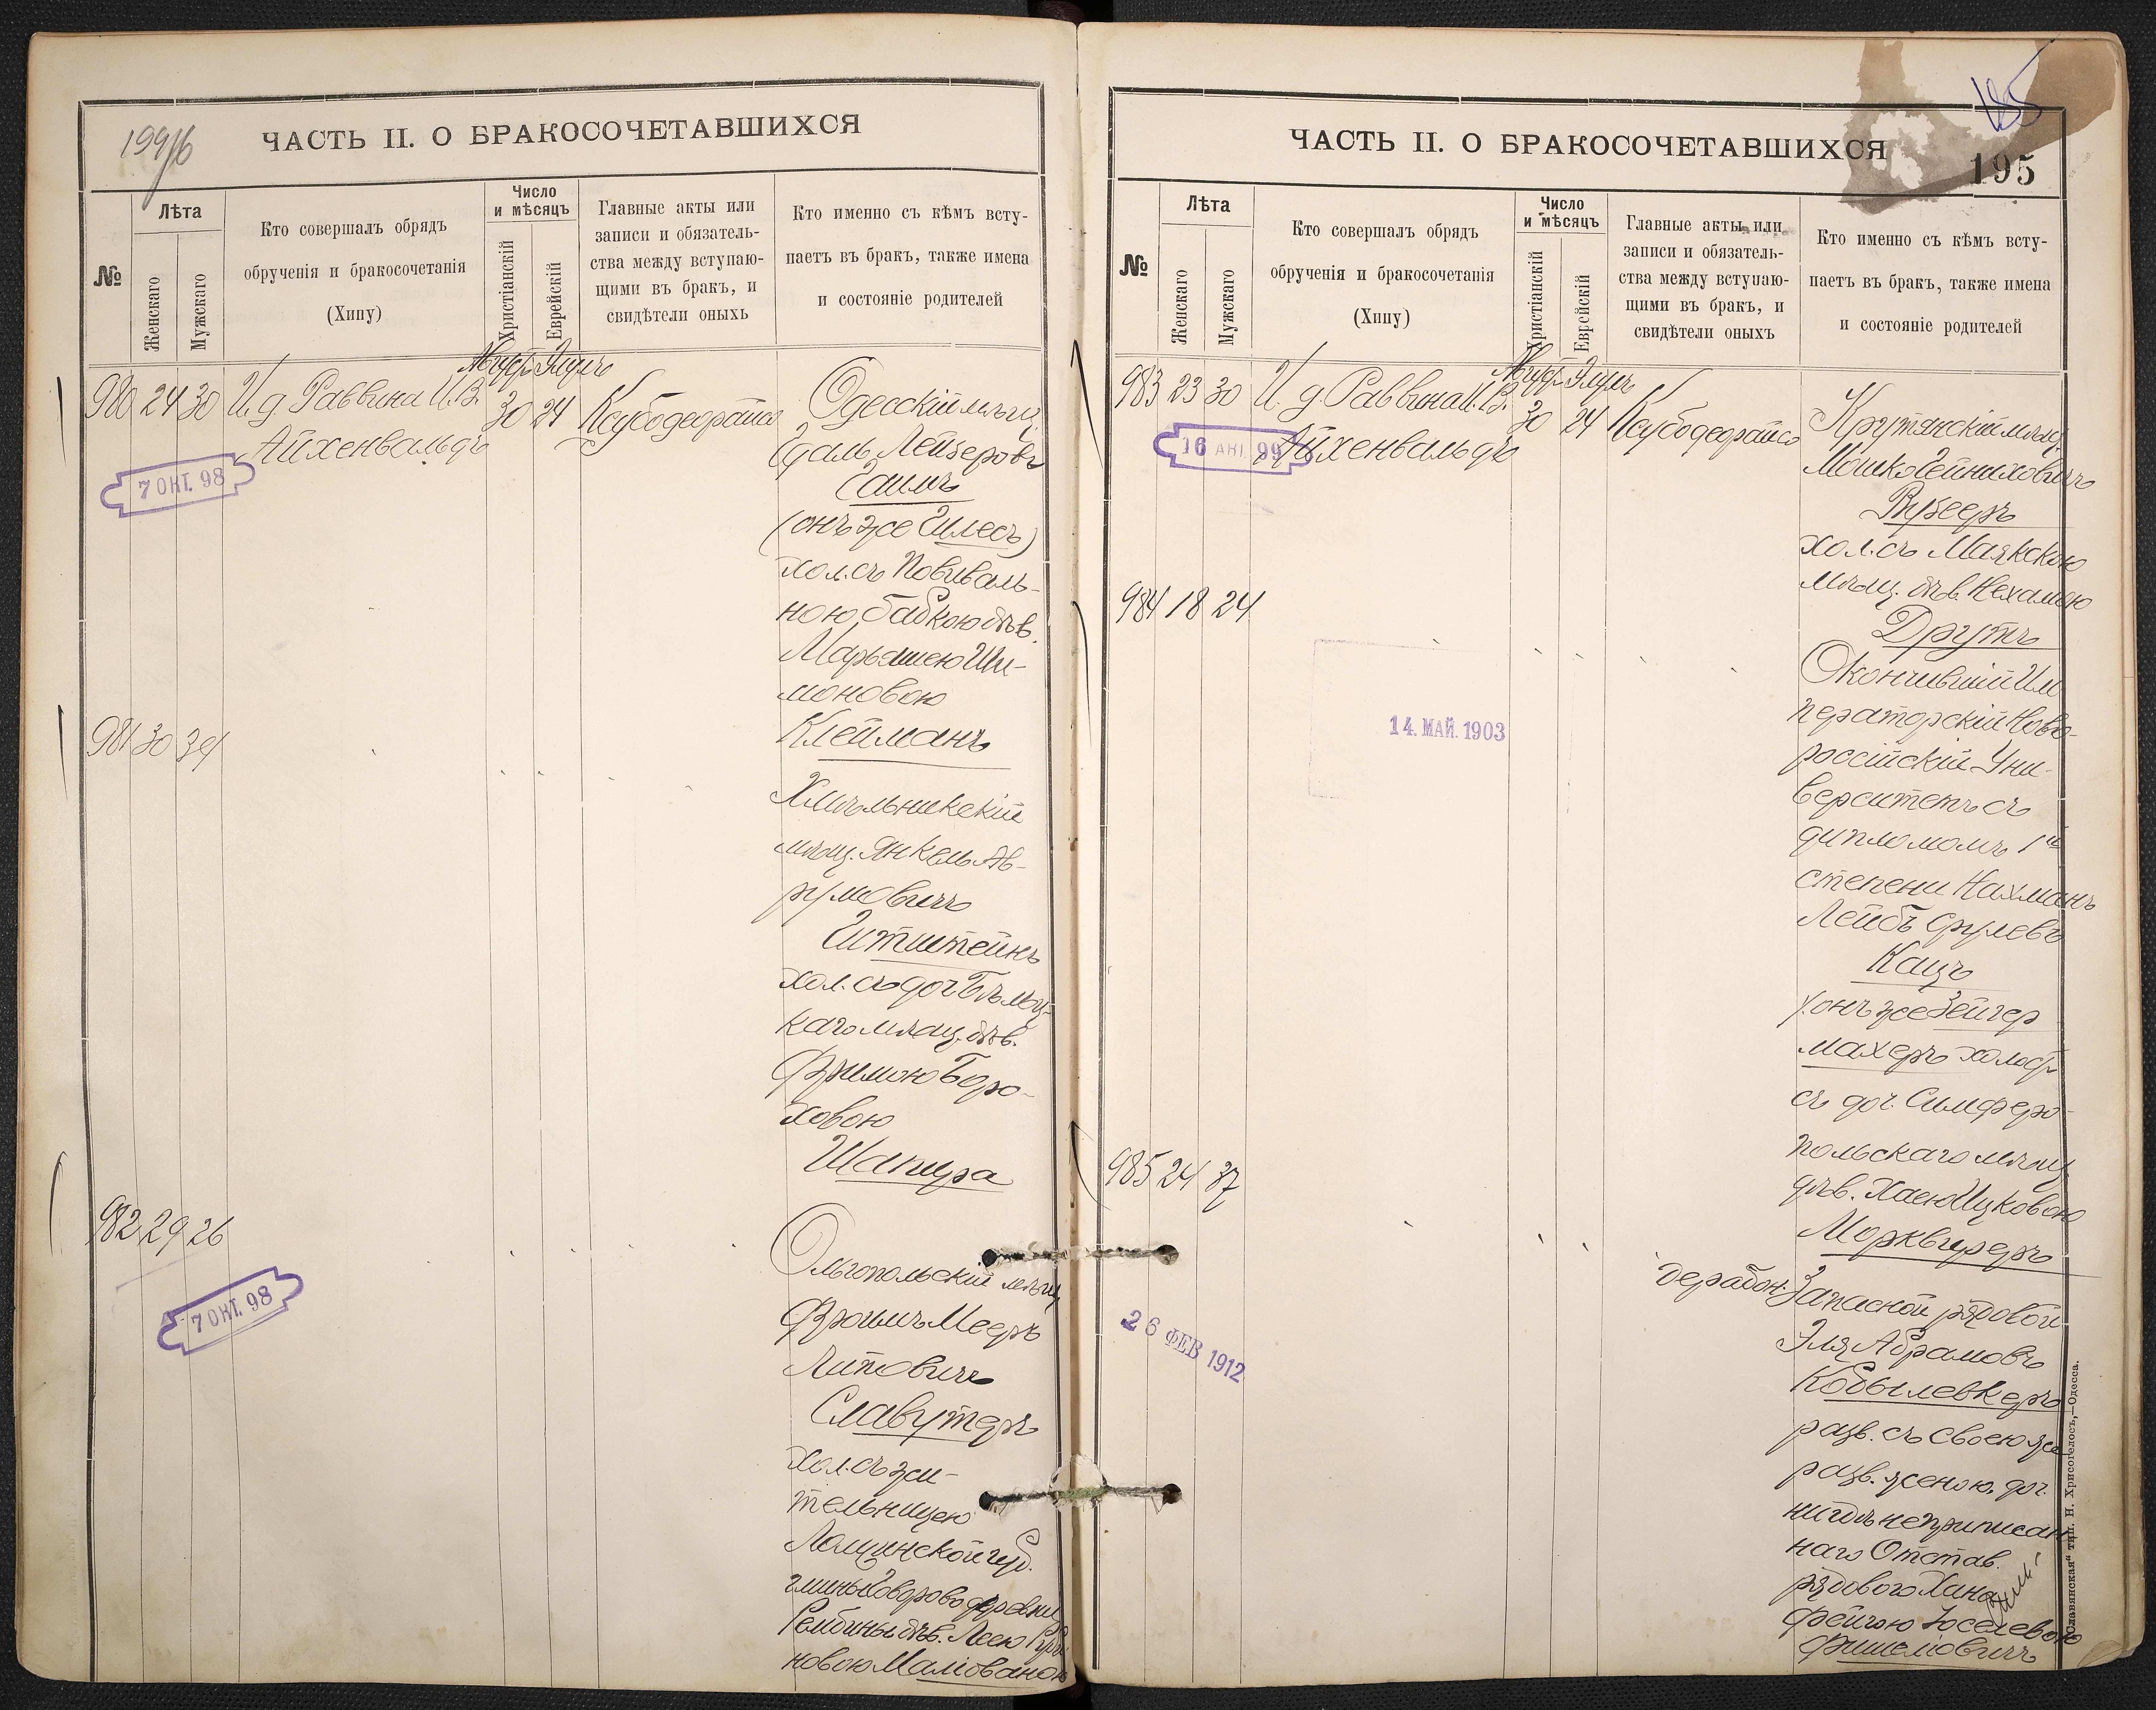 ЧАСТЬ II. О БРАКОСОЧЕТАВШИХСЯ
№
Лѣта
Женскаго
Мужскаго
Кто совершалъ обрядъ
обрученія и бракосочетанія
(Хипу)
Число
и мѣсяцъ
Христіанскій
Еврейскій
Главные акты или
записи и обязатель-
ства между вступаю-
щими въ бракъ, и
свидѣтели оныхъ
Кто именно съ кѣмъ всту-
паетъ въ бракъ, также имена
и состояніе родителей
980 24 30 И. д. Раввина И. В.
Айхенвальдъ
30 24
7 ОКТ. 98
Одесскій мѣщ.
Лейзеровъ
(онъ же Гилесъ)
хол. съ Повиваль-
ною бабкою дѣв.
Марьяшею Ши-
моновою
Клейманъ
981 30 34
Хмѣльникскій
мѣщ. Янкель Ав-
румовичъ
хол. съ доч. Бѣльц-
каго мѣщ. дѣв.
Фримою Боро-
ховою
Шапира
982 29 26
7 ОКТ. 98
Ольгопольскій мѣщ.
Фроимъ Мееръ
Славутеръ
хол. съ жи-
тельницею
Ломжинской губ.
гмины деревни
дѣв. Лею
новою Маліованою
ЧАСТЬ II. О БРАКОСОЧЕТАВШИХСЯ
185
195
№
Лѣта
Женскаго
Мужскаго
Кто совершалъ обрядъ
обрученія и бракосочетанія
(Хипу)
Число
и мѣсяцъ
Христіанскій
Еврейскій
Главные акты или
записи и обязатель-
ства между вступаю-
щими въ бракъ, и
свидѣтели оныхъ
Кто именно съ кѣмъ всту-
паетъ въ бракъ, также имена
и состояніе родителей
983 23 30 И. д. Раввина И. В.
Айхенвальдъ
30 24
16 АВГ. 99
Крутянскій мѣщ.
Мошко Гейниховичъ
хол. съ Маякскою
мѣщ. дѣв. Нехамою
Друтъ
984 18 24
14. МАЙ. 1903
Окончившій Им
ператорскій Ново-
россійскій Уни-
верситетъ съ
дипломомъ 1й
степени Нахманъ
Лейбъ Срулевъ
Кацъ
(онъ же Зейгер
махеръ холост
съ доч. Симферо-
польскаго мѣщ.
дѣв. Хаею Ицковою
Морквиреръ
985 24 37
26 ФЕВ 1912
Запасной рядовой
Эля Абрамовъ
Кобылевкеръ
разв. съ своею же
разв. женою, доч.
нигдѣ неприписан
наго Отстав.
рядового Хана
Фейгою Юселевою
Фишелювичъ
„Славянская" тип. Н. Хрисогелосъ,—Одесса.